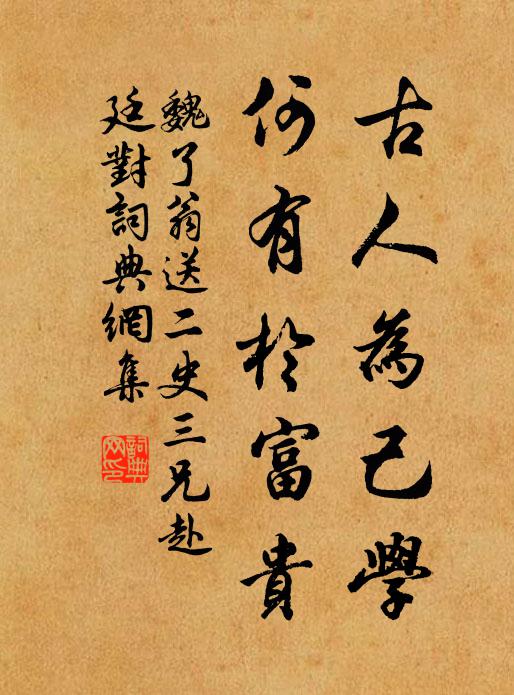 古人為己學
何有於富貴
魏了翁送二史三兄赴
廷對詞典網集
詞典
网印